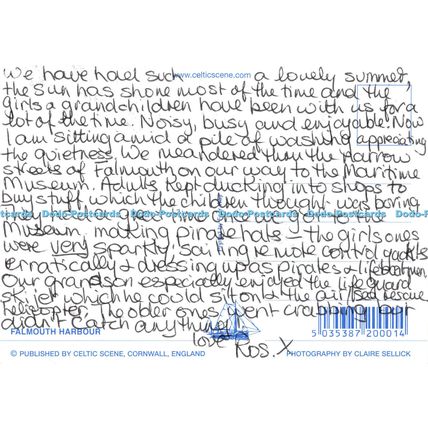 We have had such a lovely summer,
www.celticscene.com
the Sun has shone most of the time and the
girls & grandchildren have been with us for a
lot of the time. Noisy, busy and enjoyable. Now
I am sitting amid a pile of washing appreciating
the quietness. We meandered thru the narrow
streets of Falmouth on our way to the Maritime
Museum. Adults kept ducking into shops to
buy stuff, which the children thought was boring
Dodo-Postcards Dodo-Postcards Dodo-Postcards
Museum, making pirate hats - the girls ones
were very sparkly, sailing remote control yachts
erratically & dressing up as pirates & lifeboatmen.
Our grandson especially enjoyed the lifeguard
ski jet which he could sit on & the air/sea rescue
helicopter. The older ones went crabbing but
didn't catch anything
FALMOUTH HARBOUR
5 035387 200014
love Ros. X
© PUBLISHED BY CELTIC SCENE, CORNWALL, ENGLAND
PHOTOGRAPHY BY CLAIRE SELLICK